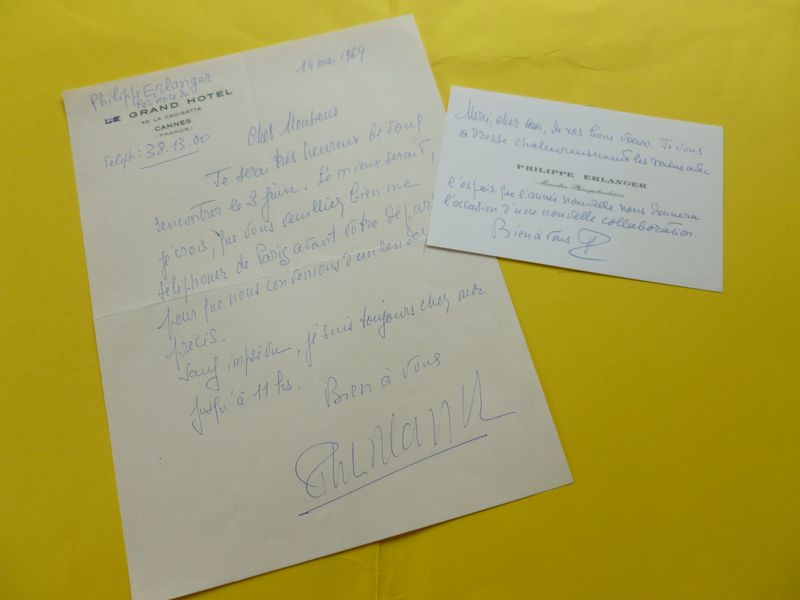 Philippe Erlanger
Résidence du
LE GRAND HOTEL
45 LA CROISETTE
CANNES
(FRANCE)
Teleph: 38.13.00
14 mai 1969
Cher Monsieur
Je serai très heureux de vous
rencontrer le 2 juin. Le mieux serait,
je crois, que vous veuilliez bien me
téléphoner de Paris avant votre départ
pour que nous convenions d'un rendez
précis.
Sauf imprévu, je suis toujours chez moi
jusqu'à 11 hs.
Bien à vous
Merci, cher ami, de vos bons vœux. Je vous
adresse chaleureusement les miens avec
PHILIPPE ERLANGER
Ministre Plénipotentiaire
l'espoir que l'année nouvelle nous donnera
l'occasion d'une nouvelle collaboration.
Bien à vous